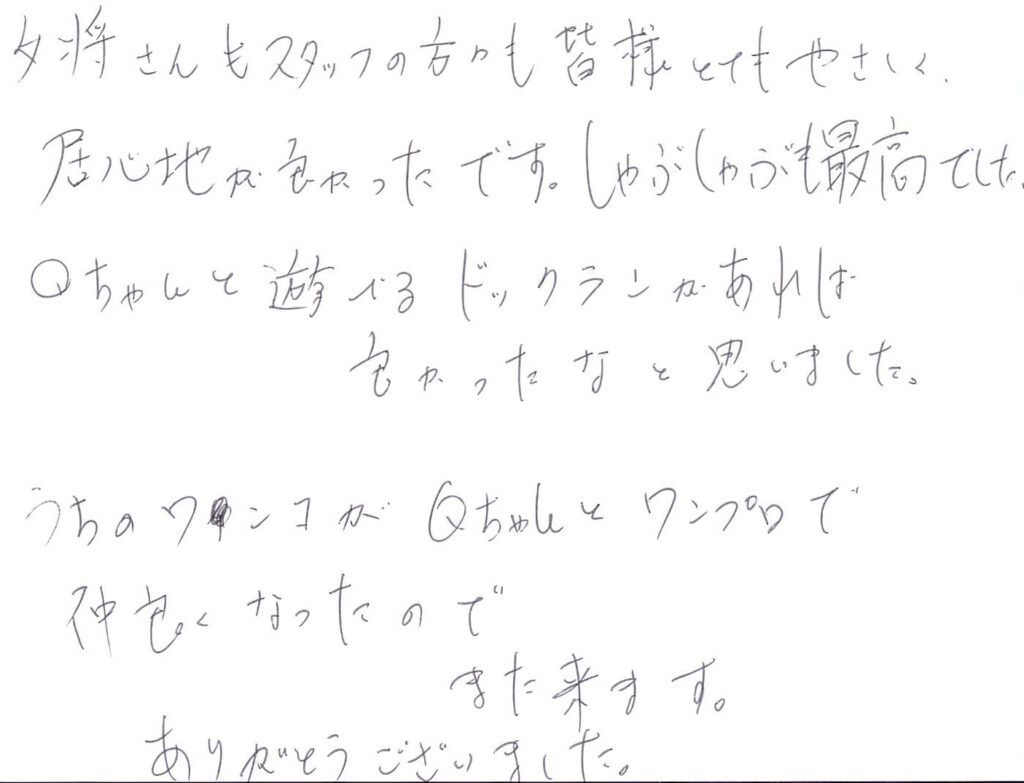 女将さんもスタッフの方々も皆様とてもやさしく、
居心地が良かったです。しゃぶしゃぶも最高でした。
Qちゃんと遊べるドックランがあれば
良かったなと思いました。
うちのワンコがQちゃんとワンプロで
仲良くなったので
また来ます。
ありがとうございました。